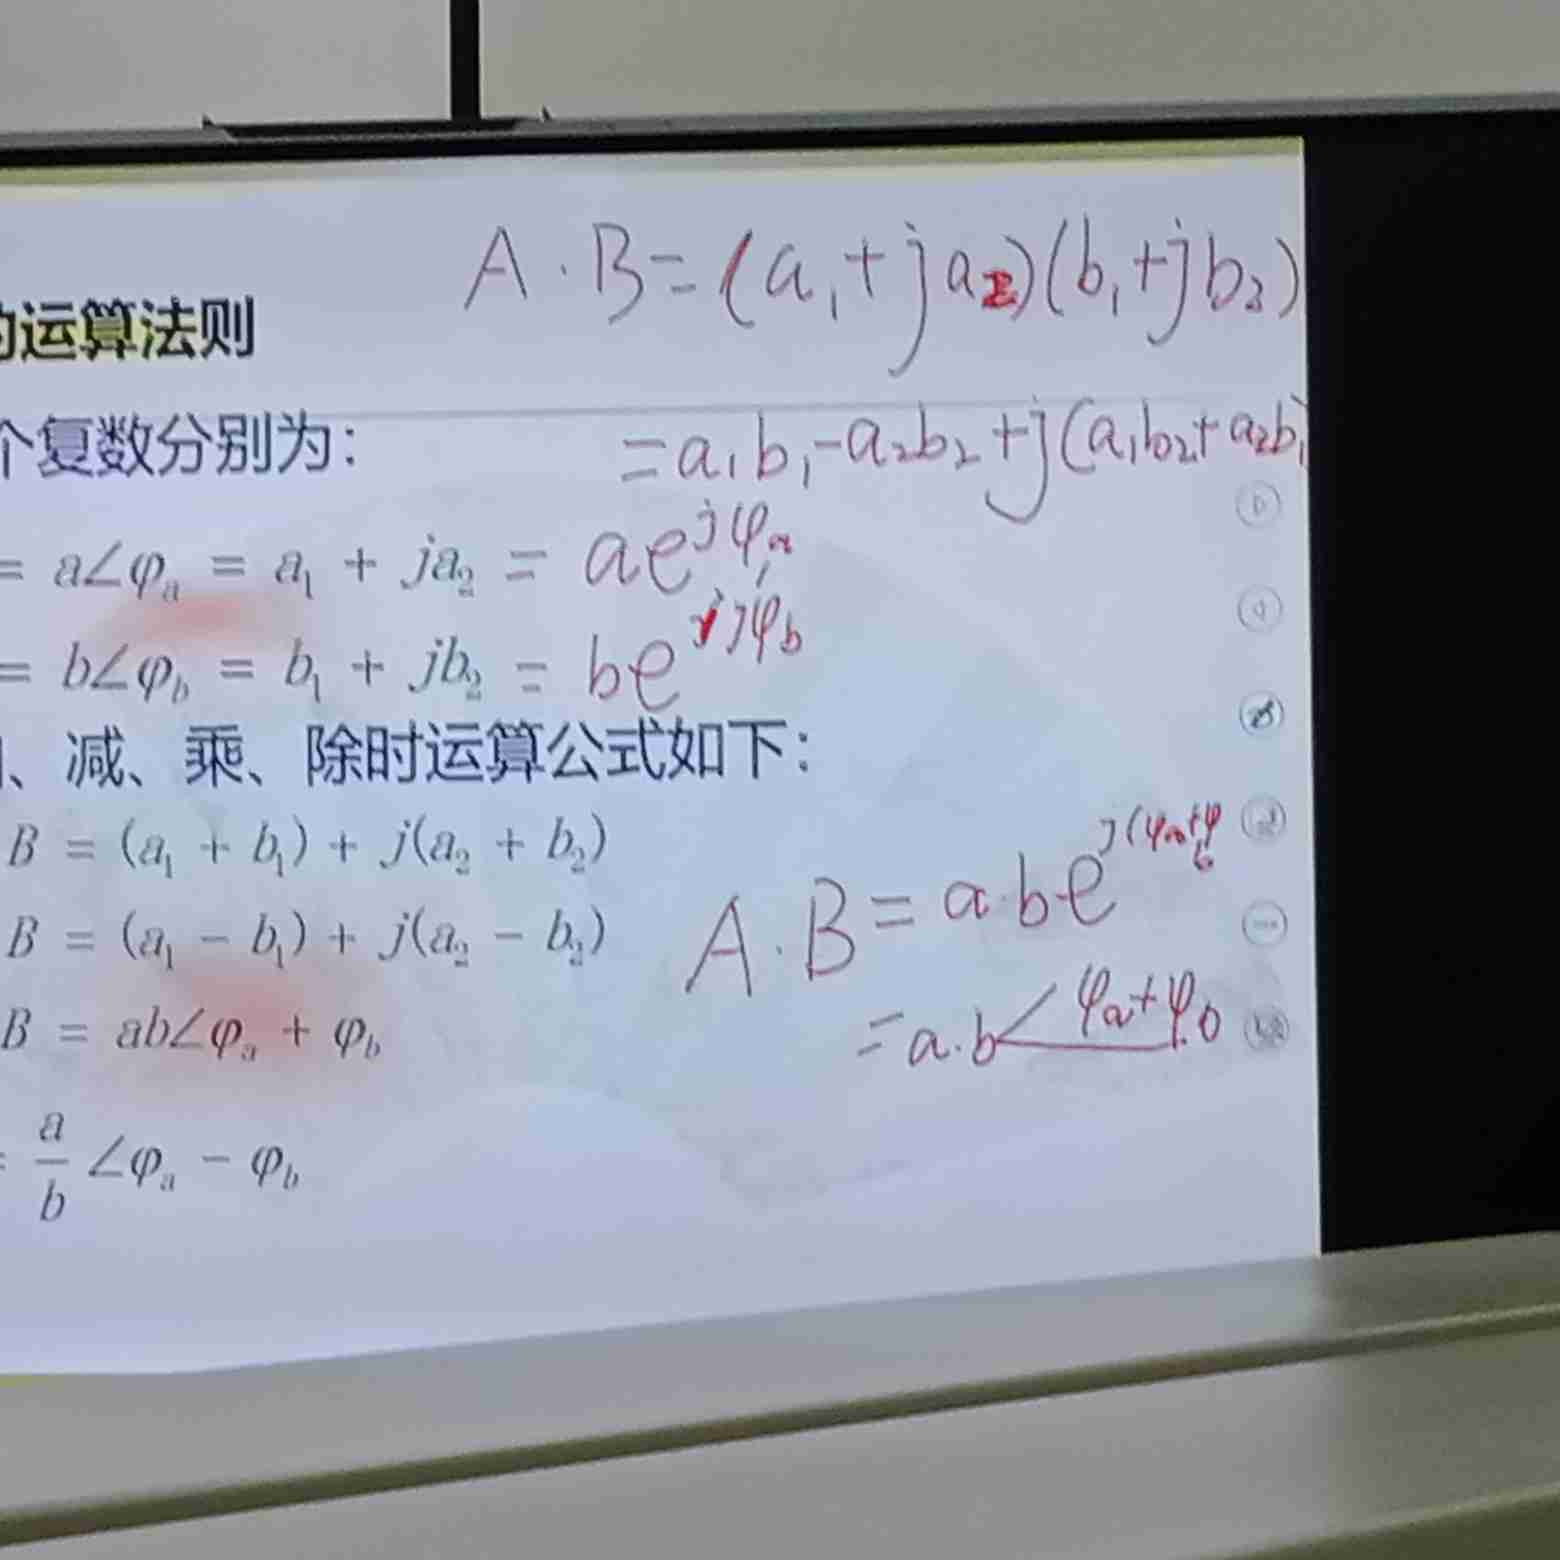 A · B = (a₁ + ja₂)(b₁ + jb₂)
的运算法则
个复数分别为：
= a₁b₁ - a₂b₂ + j(a₁b₂ + a₂b₁
= a∠φₐ = a₁ + ja₂ = ae^{jφₐ}
= b∠φ_b = b₁ + jb₂ = be^{jφ_b}
、减、乘、除时运算公式如下：
B = (a₁ + b₁) + j(a₂ + b₂)
B = (a₁ - b₁) + j(a₂ - b₂)
A · B = a·be^{j(φₐ+φ_b}
B = ab∠φₐ + φ_b
= a·b∠φₐ+φ_b
= a/b ∠φₐ - φ_b